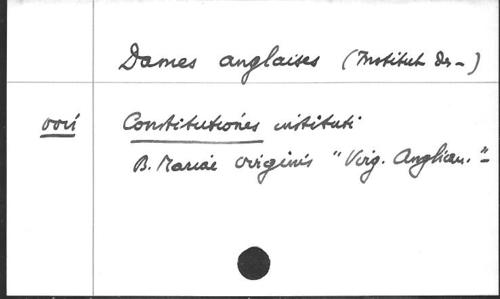 Dames anglaises (Institut des -)
voir Constitutiones instituti
B. Mariae virginis "Virg. Anglican."